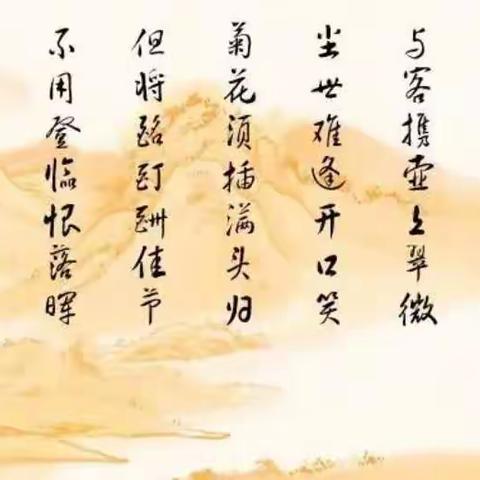 与客携壶上翠微
尘世难逢开口笑
菊花须插满头归
但将酩酊酬佳节
不用登临恨落晖